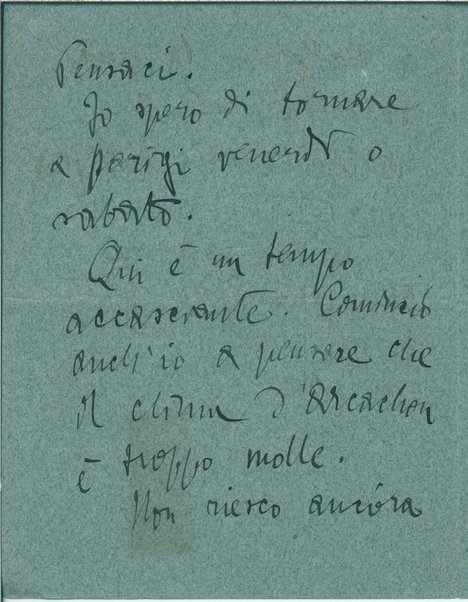 Pensaci.
Io spero di tornare
a Parigi venerdì o
sabato.
Qui è un tempo
accasciante. Comincio
anch'io a pensare che
il clima d'Arcachon
è troppo molle.
Non riesco ancora